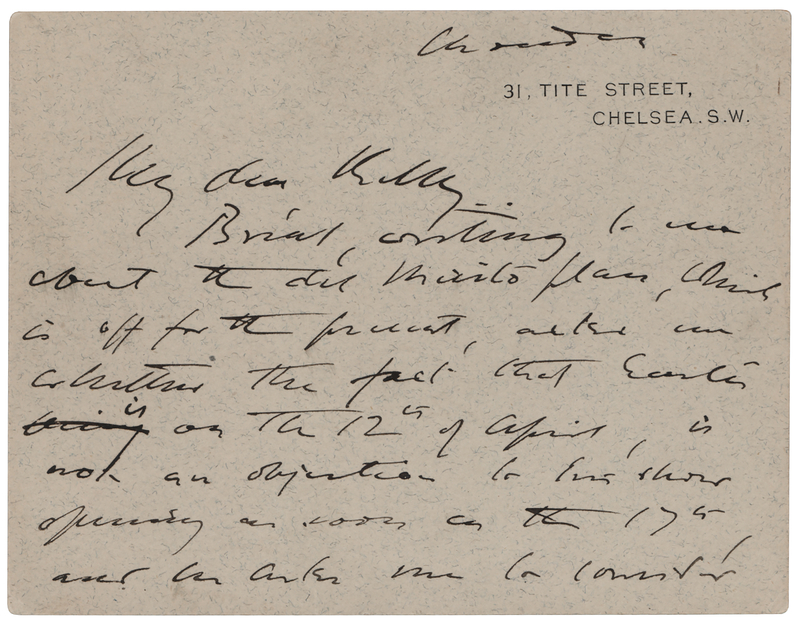 31, TITE STREET,
CHELSEA. S.W.
My dear Kelly..
Brial, writing to me
about the del plan, which
is off for the present, asks me
whether the fact that Easter
is on the 12th of April, is
not an objection to his show
opening as soon as the 17th,
and he asks me to consider